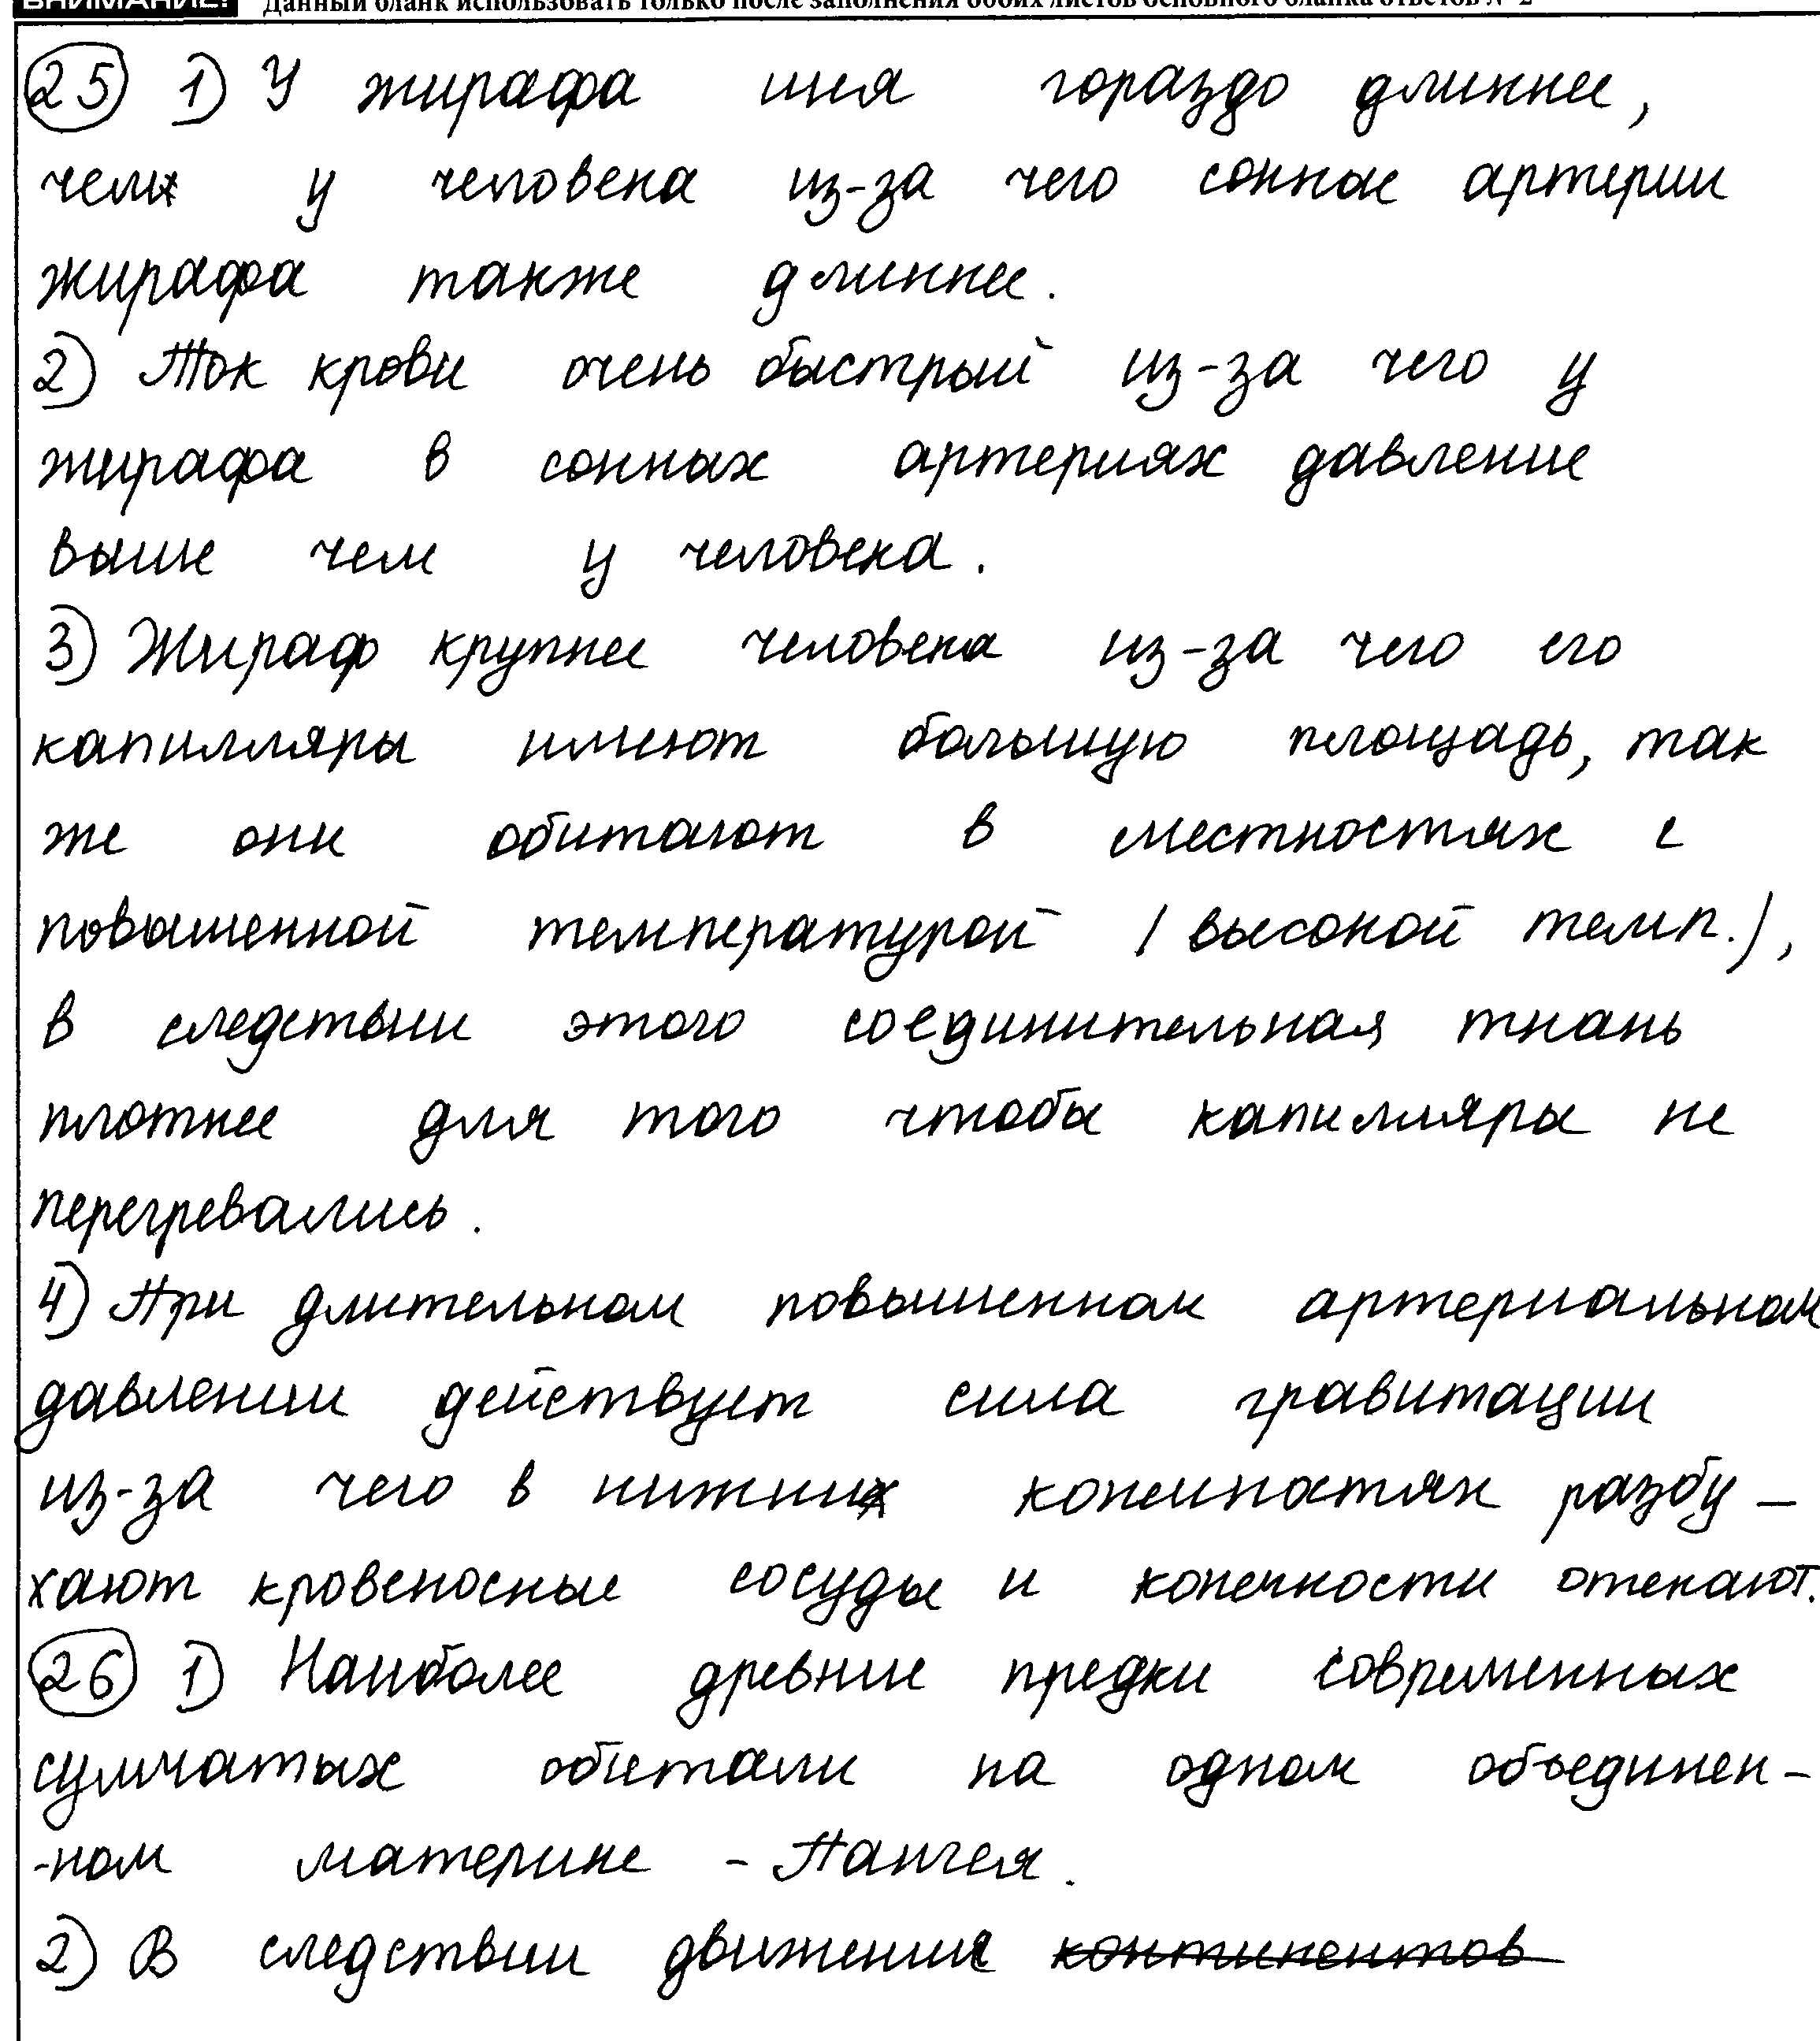 ВНИМАНИЕ! Данный бланк использовать только после заполнения обоих листов основного бланка ответов № 2
25 1) У жирафа шея гораздо длиннее,
чем у человека из-за чего сонные артерии
жирафа также длиннее.
2) Ток крови очень быстрый из-за чего у
жирафа в сонных артериях давление
выше чем у человека.
3) Жираф крупнее человека из-за чего его
капилляры имеют большую площадь, так
же они обитают в местностях с
повышенной температурой (высокой темп.),
в следствии этого соединительная ткань
плотнее для того чтобы капилляры не
перегревались.
4) При длительном повышенном артериальном
давлении действует сила гравитации
из-за чего в нижних конечностях разбу-
хают кровеносные сосуды и конечности отекают.
26 1) Наиболее древние предки современных
сумчатых обитали на одном объединен-
-ном материке - Пангея.
2) В следствии движения континентов